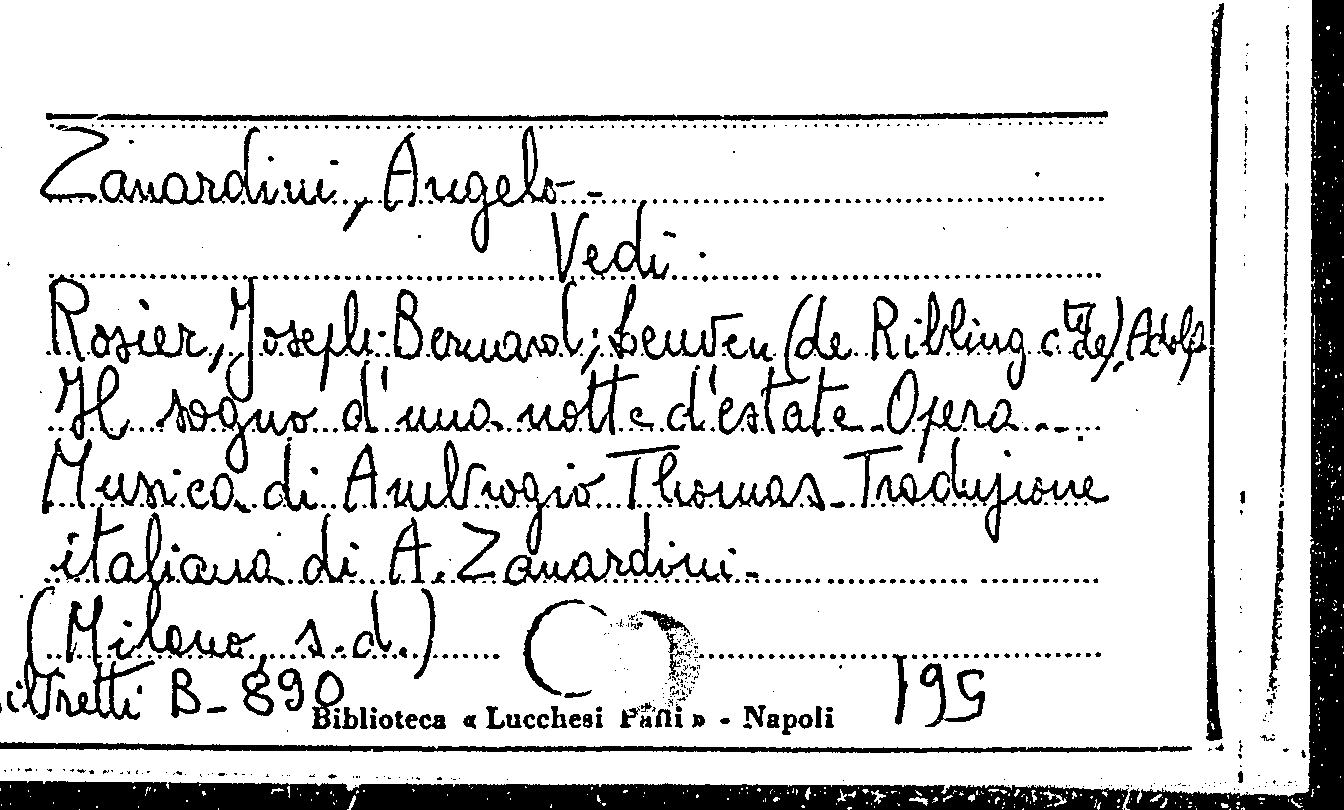 Zanardini, Angelo -
Vedi
Rosier, Joseph-Bernard; Leuven (de Ribbing cte de), Adolf
Il sogno d'una notte d'estate - Opera ...
Musica di Ambrogio Thomas - Traduzione
italiana di A. Zanardini -
(Milano, s.d.)
ibretti B - 890
Biblioteca « Lucchesi Palli » - Napoli
195